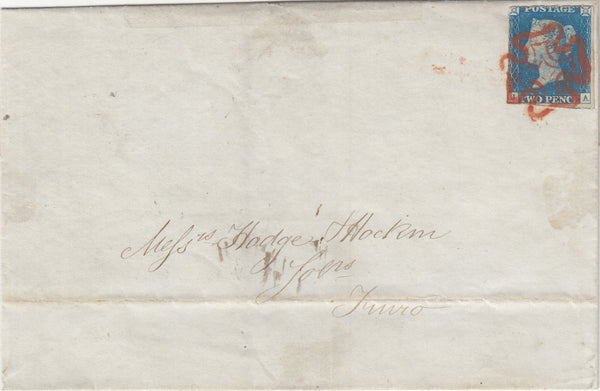 POSTAGE
TWO PENCE
A
Messrs Hodge & Hockin
Solrs
Truro